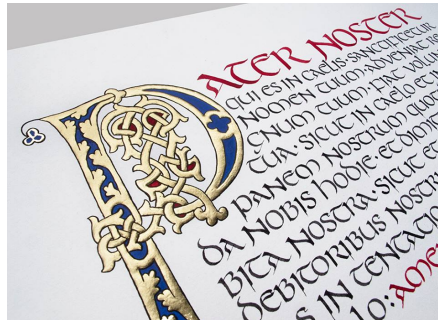 PATER NOSTER
QUI ES IN CAELIS·SANCTIFICETUR
NOMEN TUUM·ADVENIAT RE
GNUM TUUM·FIAT VOLUN
TUA·SICUT IN CAELO ET IN
PANEM NOSTRUM QUO
DA NOBIS HODIE·ET DIMIT
BITA NOSTRA·SICUT ET
DEBITORIBUS NOSTR
S IN TENTATIO
LO::AMEN